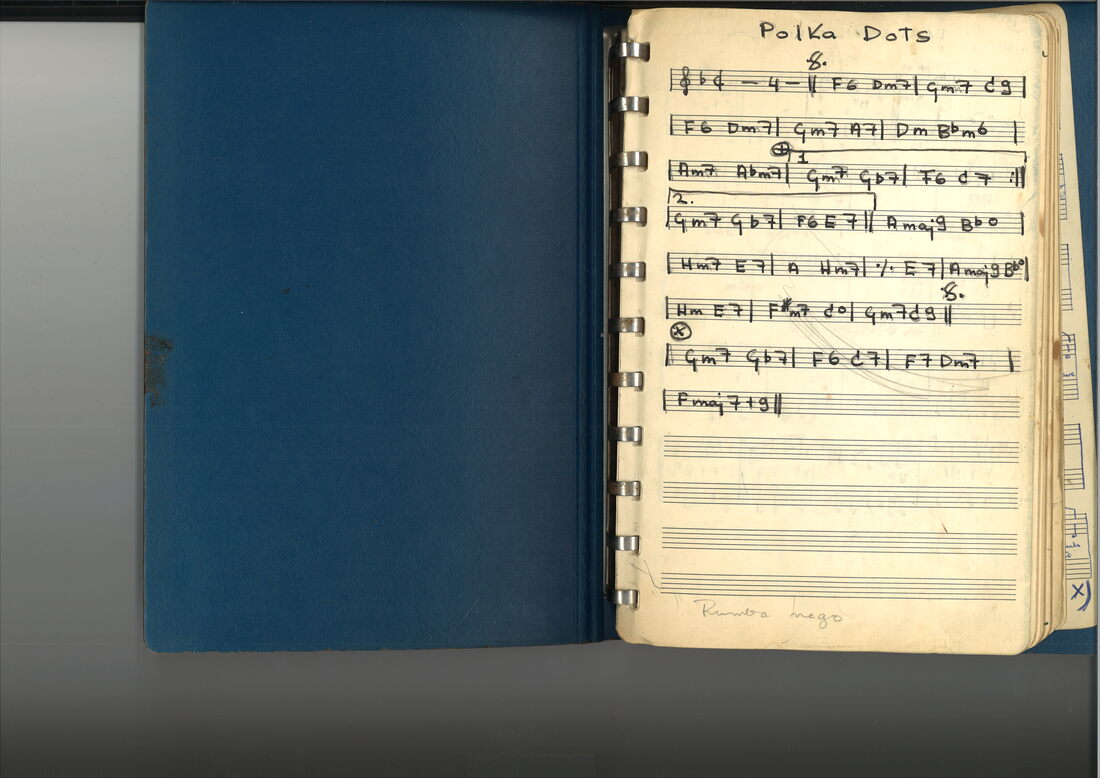 Polka Dots
𝄋
♭ ¢ — 4 — || F6 Dm7 | Gm7 C9 |
| F6 Dm7 | Gm7 A7 | Dm Bbm6 |
⊕ 1
| Am7 Abm7 | Gm7 Gb7 | F6 C7 :||
2.
| Gm7 Gb7 | F6 E7 || Amaj9 Bbo |
| Hm7 E7 | A Hm7 | ٪ E7 | Amaj9 Bbo |
𝄋
| Hm E7 | F#m7 Co | Gm7 C9 ||
⊗
| Gm7 Gb7 | F6 C7 | F7 Dm7 |
| Fmaj7+9 ||
Rumba
X